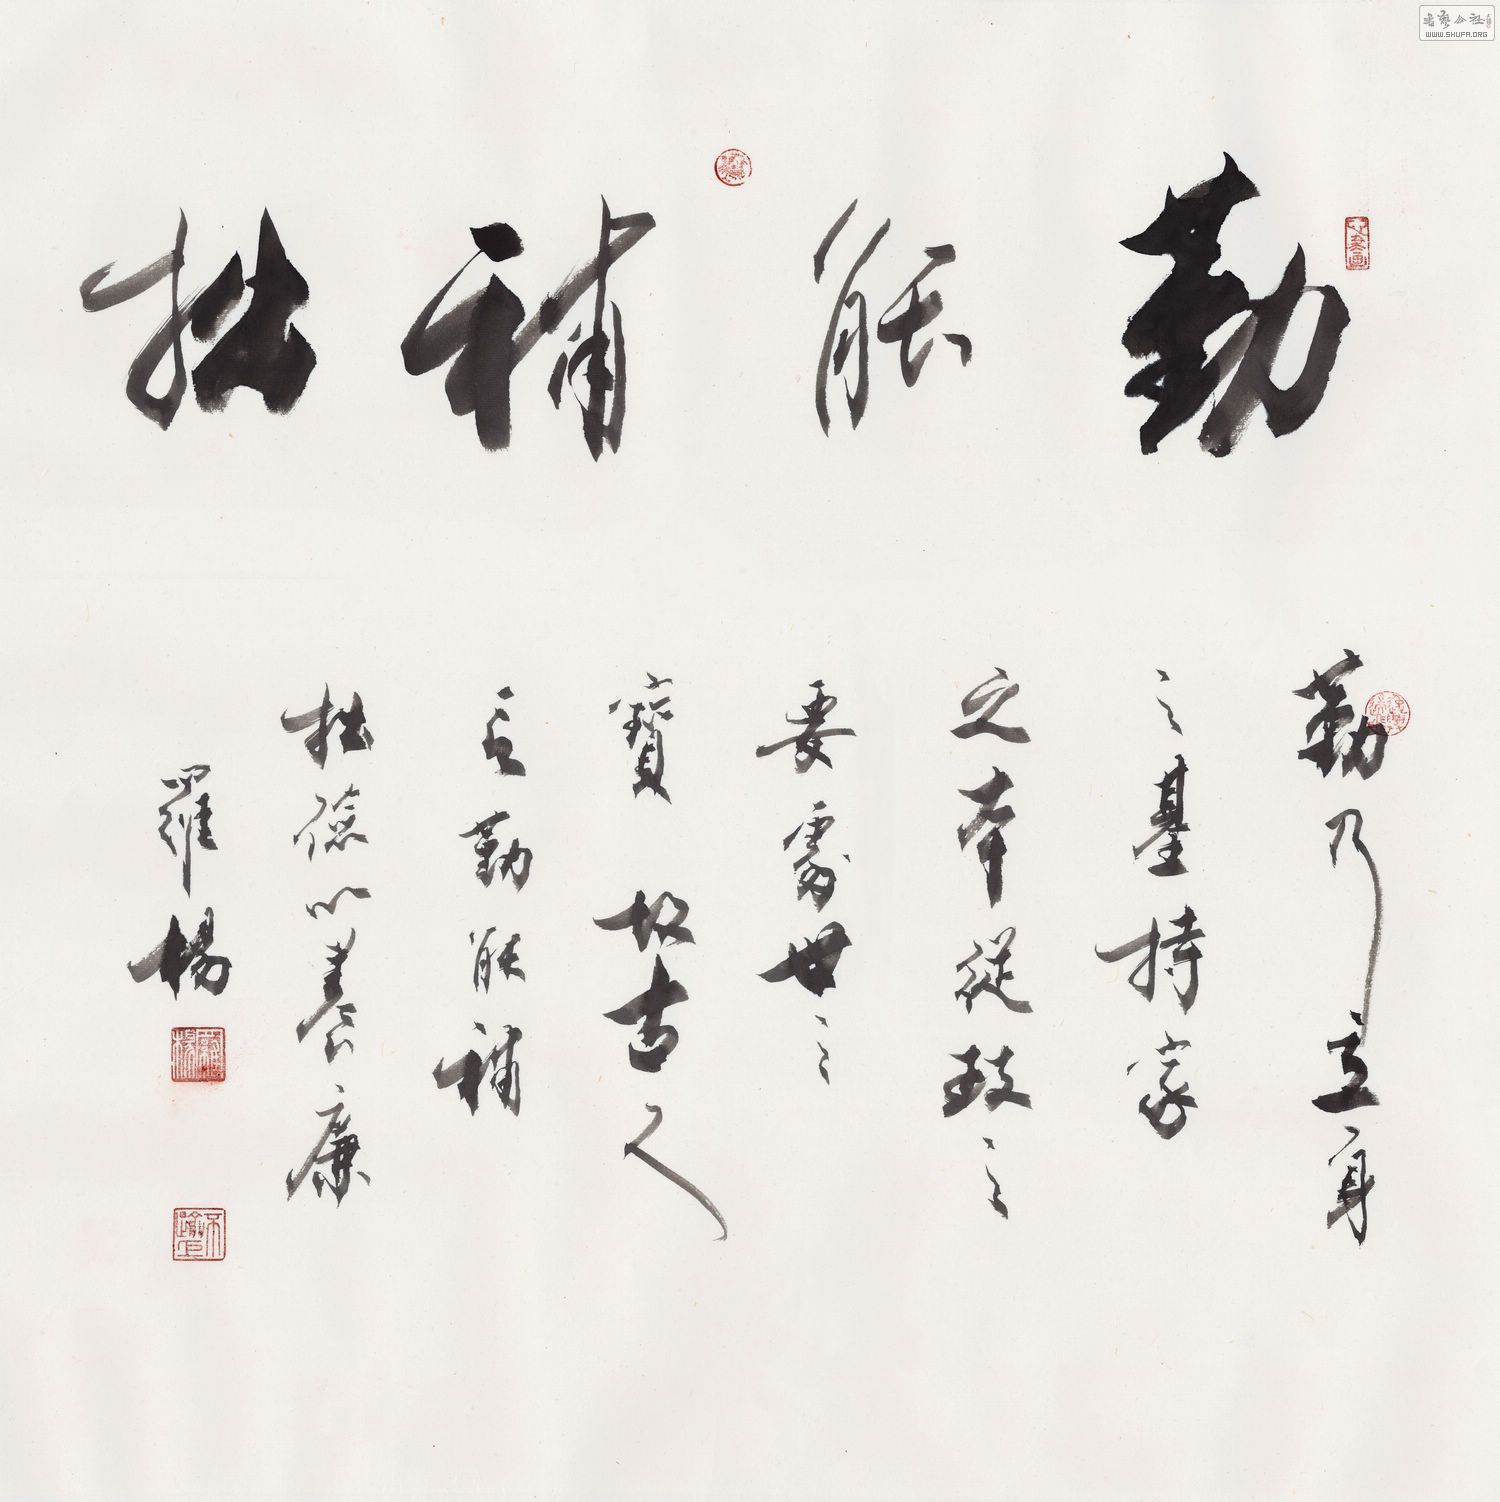 勤能補拙
勤乃立身
之基持家
之本從政之
要處世之
寶故古人
言勤能補
拙儉以養廉
羅楊
羅楊
書藝公社
WWW.SHUFA.ORG